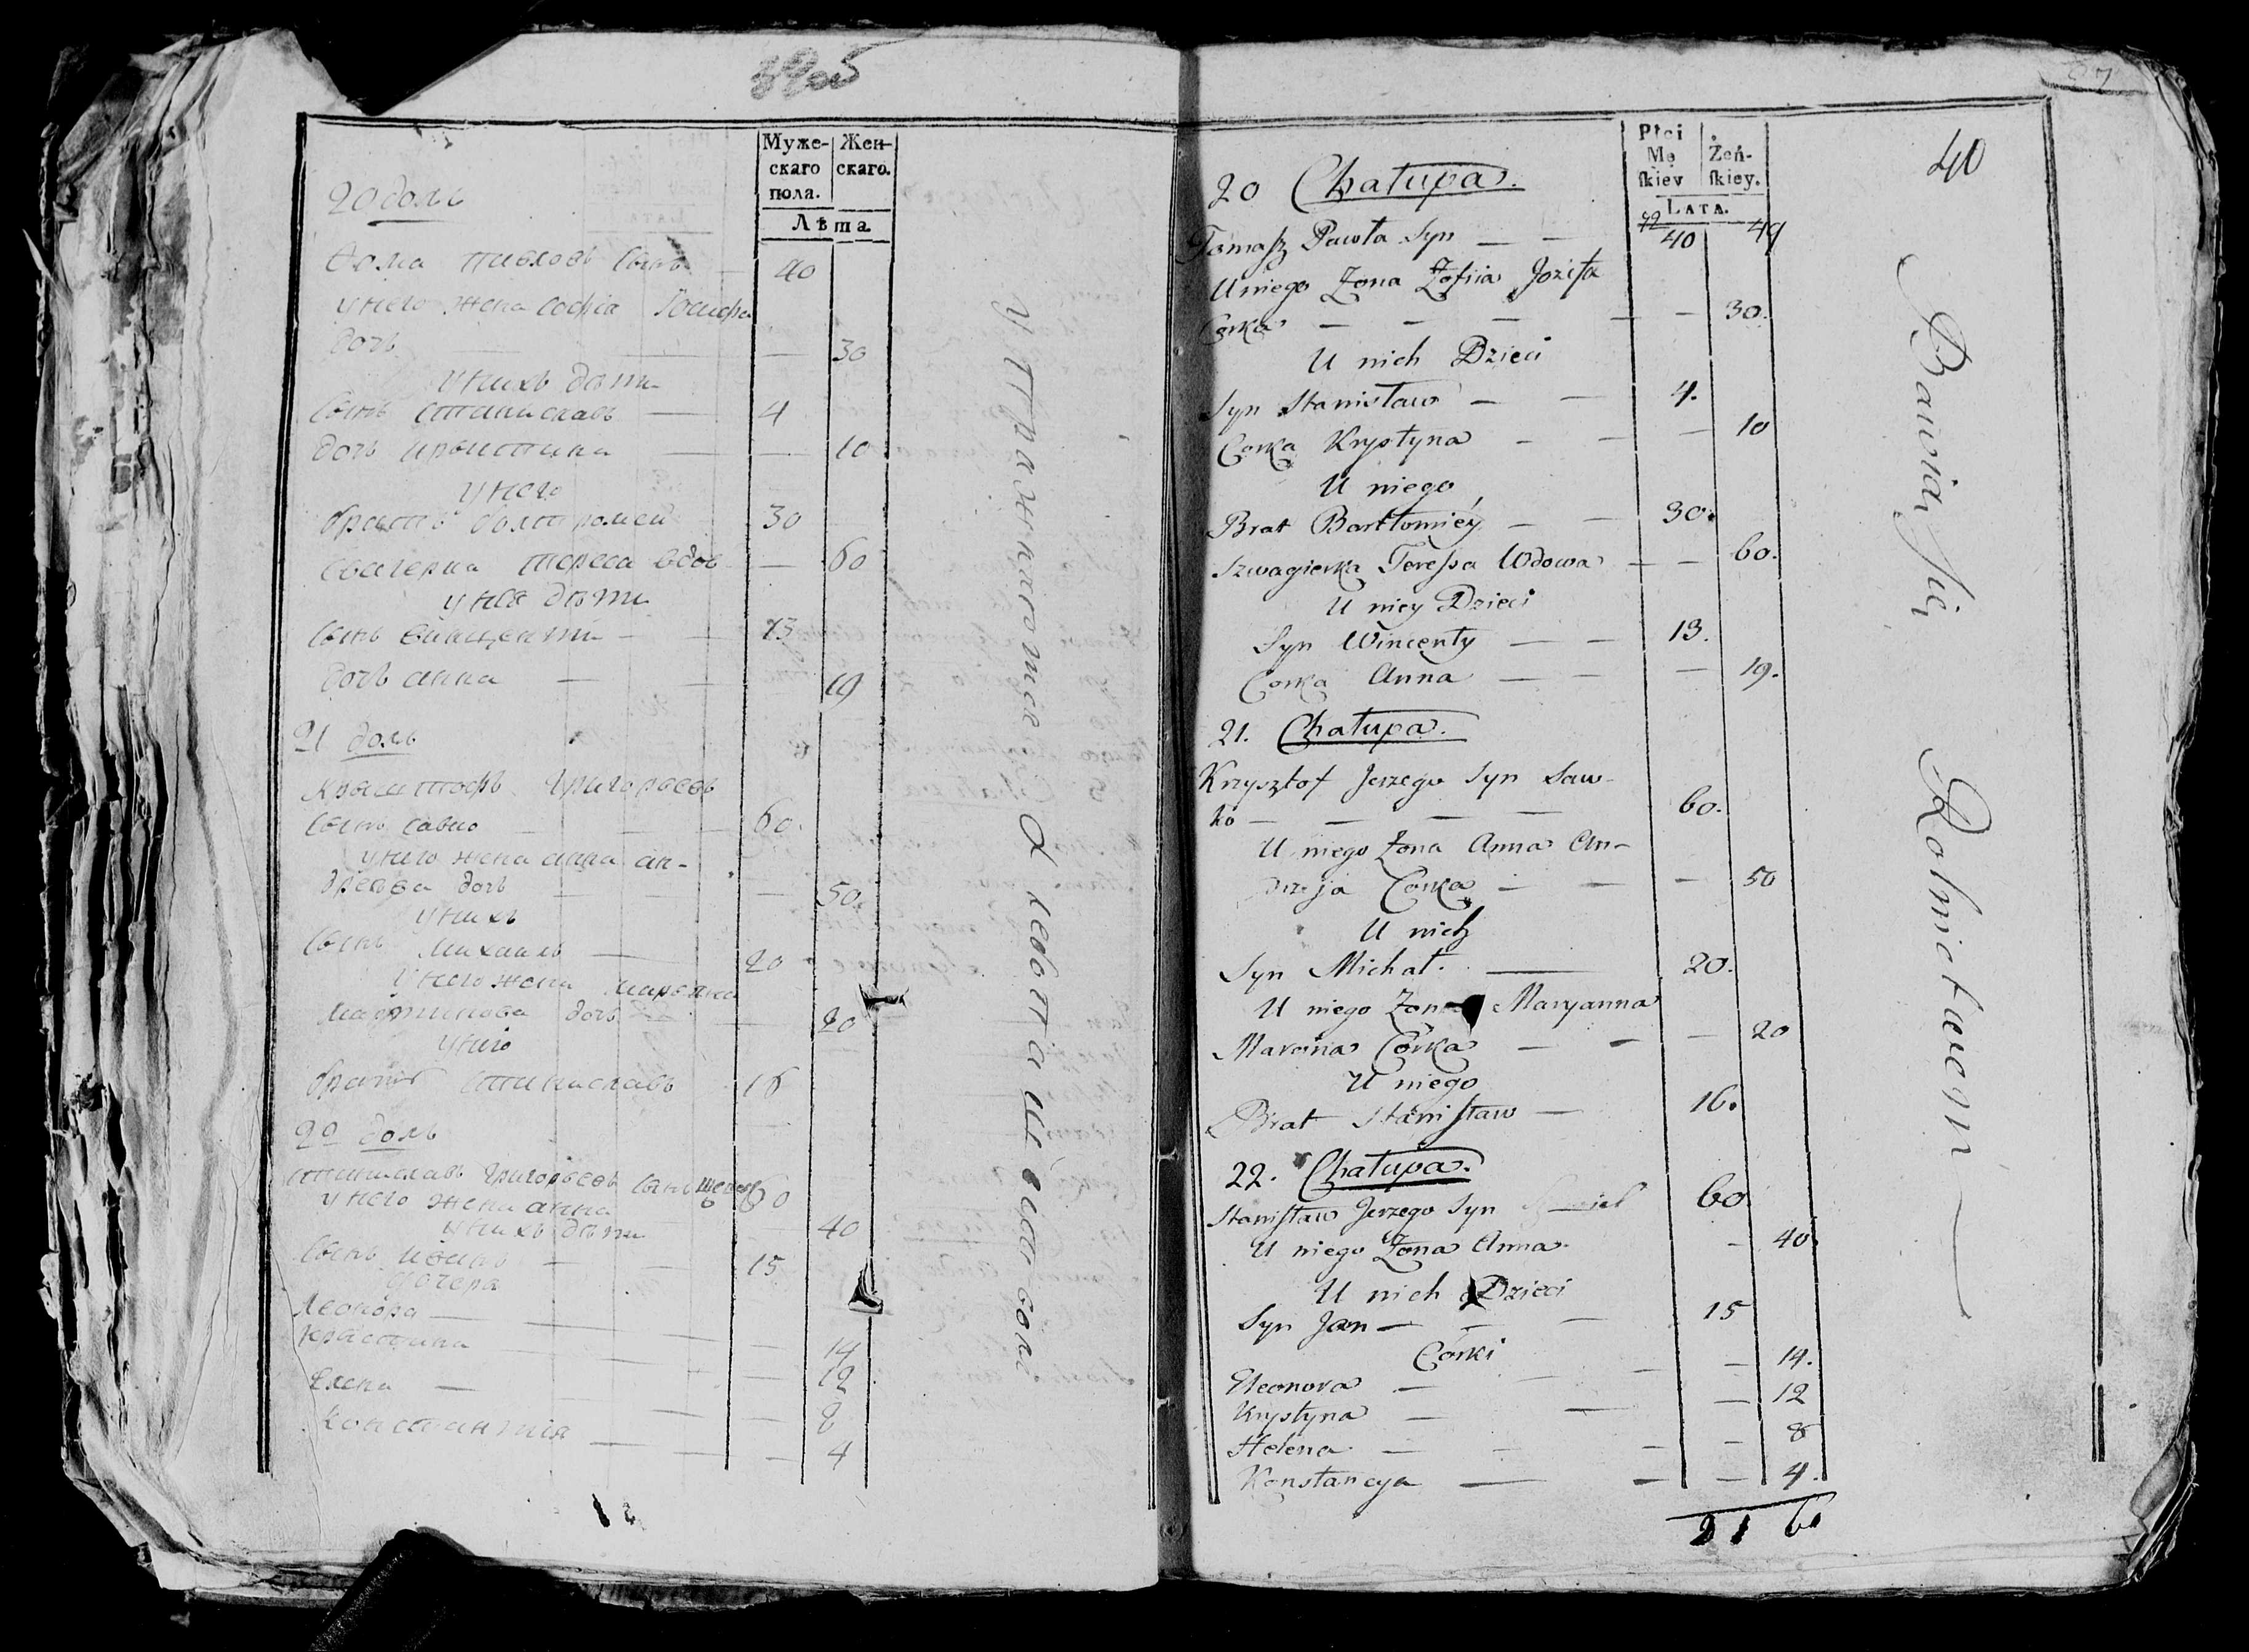 Муже-
скаго
пола.
Жен-
скаго.
Лѣта.
20 домъ
Ѳома Павловъ сынъ — 40
у него жена Софія Іосифа
дочь — 30
у нихъ дѣти
сынъ Станиславъ — 4
дочь Крыстина — — 10
у него
братъ Балтромей 30
Свагерка Тереса вдов — 60
у нея дѣти
сынъ Винцентій — 13
дочь Анна — — 19
21 домъ
Крыштофъ Григорьевъ
сынъ Савко — — 60.
у него жена Анна Ан-
дреева дочь — — 50.
у нихъ
сынъ Михаилъ — 20
у него жена Марьяна
Мартинова дочь — 20
у него
братъ Станиславъ 16
22 домъ
Станиславъ Григорьевъ сынъ 60
у него жена Анна 40
у нихъ дѣти
сынъ Иванъ — — 15
дочера
Леонора — 14
Крыстина 12
Елена — 8
Константія — — 4
Упражняются Хлебопашеством
40
Płci
Mę
skiey
Żeń-
skiey.
LATA.
42 49
20 Chałupa.
Tomasz Pawła Syn — — 40
U niego Żona Zofiia Jozefa
Corka — — — — — 30.
U nich Dzieci
Syn Stanisław — — 4.
Corka Krystyna — — — 10
U niego
Brat Bartłomiéy — — 30.
Szwagierka Teressa Wdowa — — 60.
U niey Dzieci
Syn Wincenty — — 13.
Corka Anna — — — 19.
21. Chałupa.
Krzysztof Jerzego Syn Saw-
ko — — — — 60.
U niego Żona Anna An-
drzeja Corka — — — 50
U nich
Syn Michał. — 20.
U niego Żona Maryanna
Marcina Córka — — — 20
U niego
Brat Stanisław — 16.
22. Chałupa.
Stanisław Jerzego Syn 60
U niego Żona Anna — 40.
U nich Dzieci
Syn Jan — — — 15
Córki
Eleonora — — — — 14.
Krystyna — — — 12
Helena — — — — 8
Konstancya — — — 4.
21
Bawią się Rolnictwem —